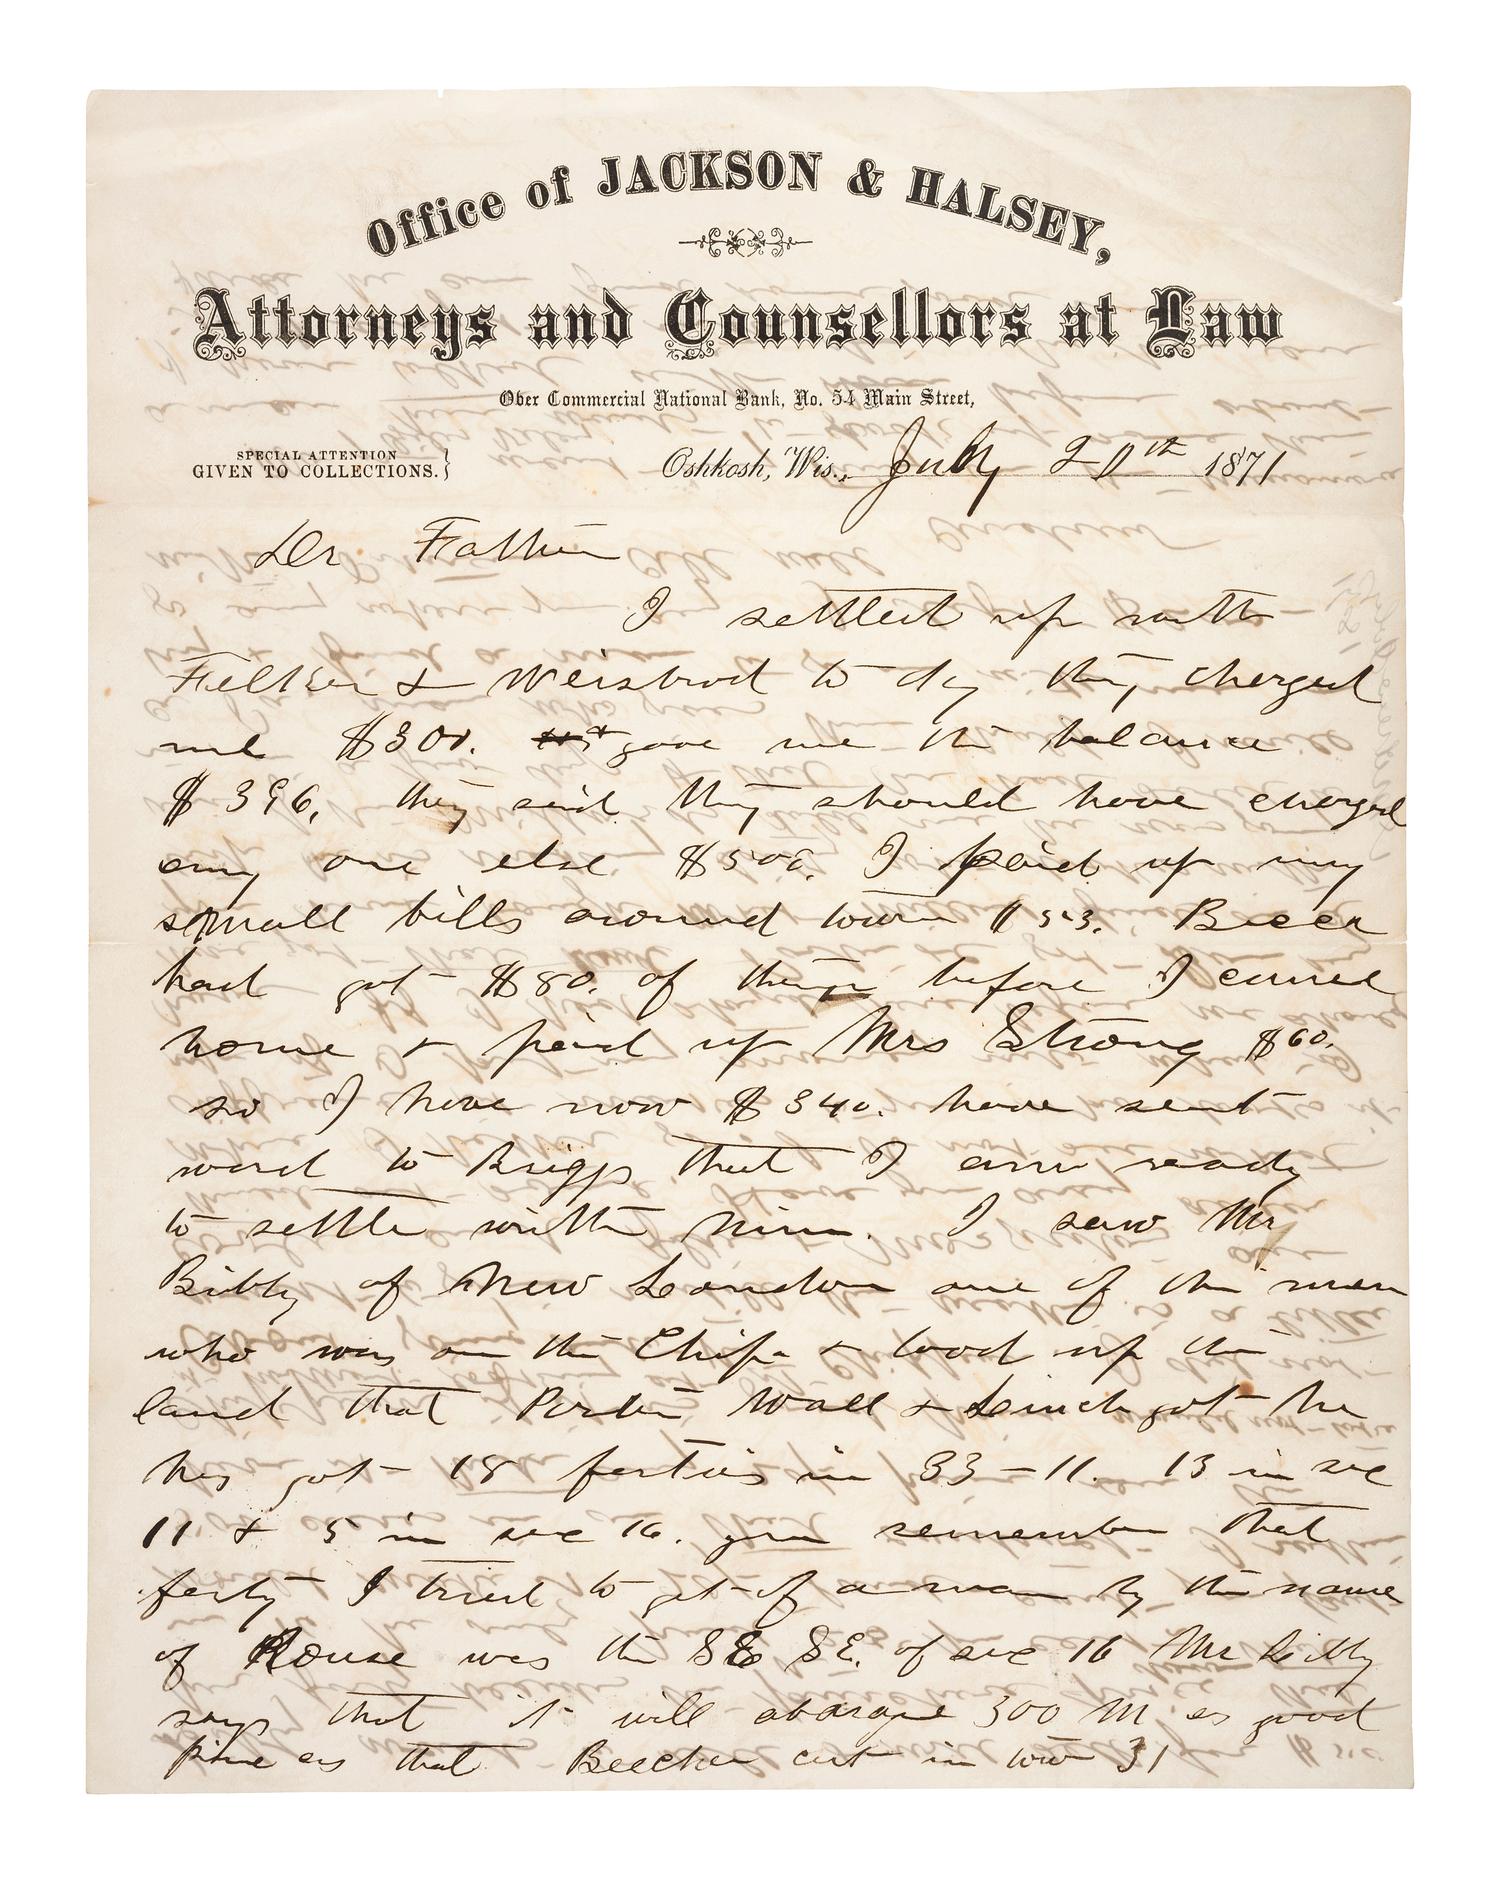 Office of JACKSON & HALSEY,
Attorneys and Counsellors at Law
Over Commercial National Bank, No. 54 Main Street,
SPECIAL ATTENTION
GIVEN TO COLLECTIONS.}
Oshkosh, Wis., July 20th 1871
Dr Father
I settled up with
Felker & Weisbrod to dy they charged
me $300. gave me the balance
$396. they said they should have charged
any one else $500. I paid up my
small bills around town $53.
had got $80. of things before I came
home & paid up Mrs Strong $60.
so I have now $340. have sent
word to Briggs that I am ready
to settle with him. I saw Mr
Bibby of New London one of the men
who was on the Chip & took up the
land that Porter Wall & got he
has got 18 forties in 33-11. 13 in sec
11 & 5 in sec 16. you remember that
forty I tried to get of a man by the name
of Rouse was the SE SE. of sec 16 Mr
says that it will average 300 M as good
Pine as that Beecher cut in town 31